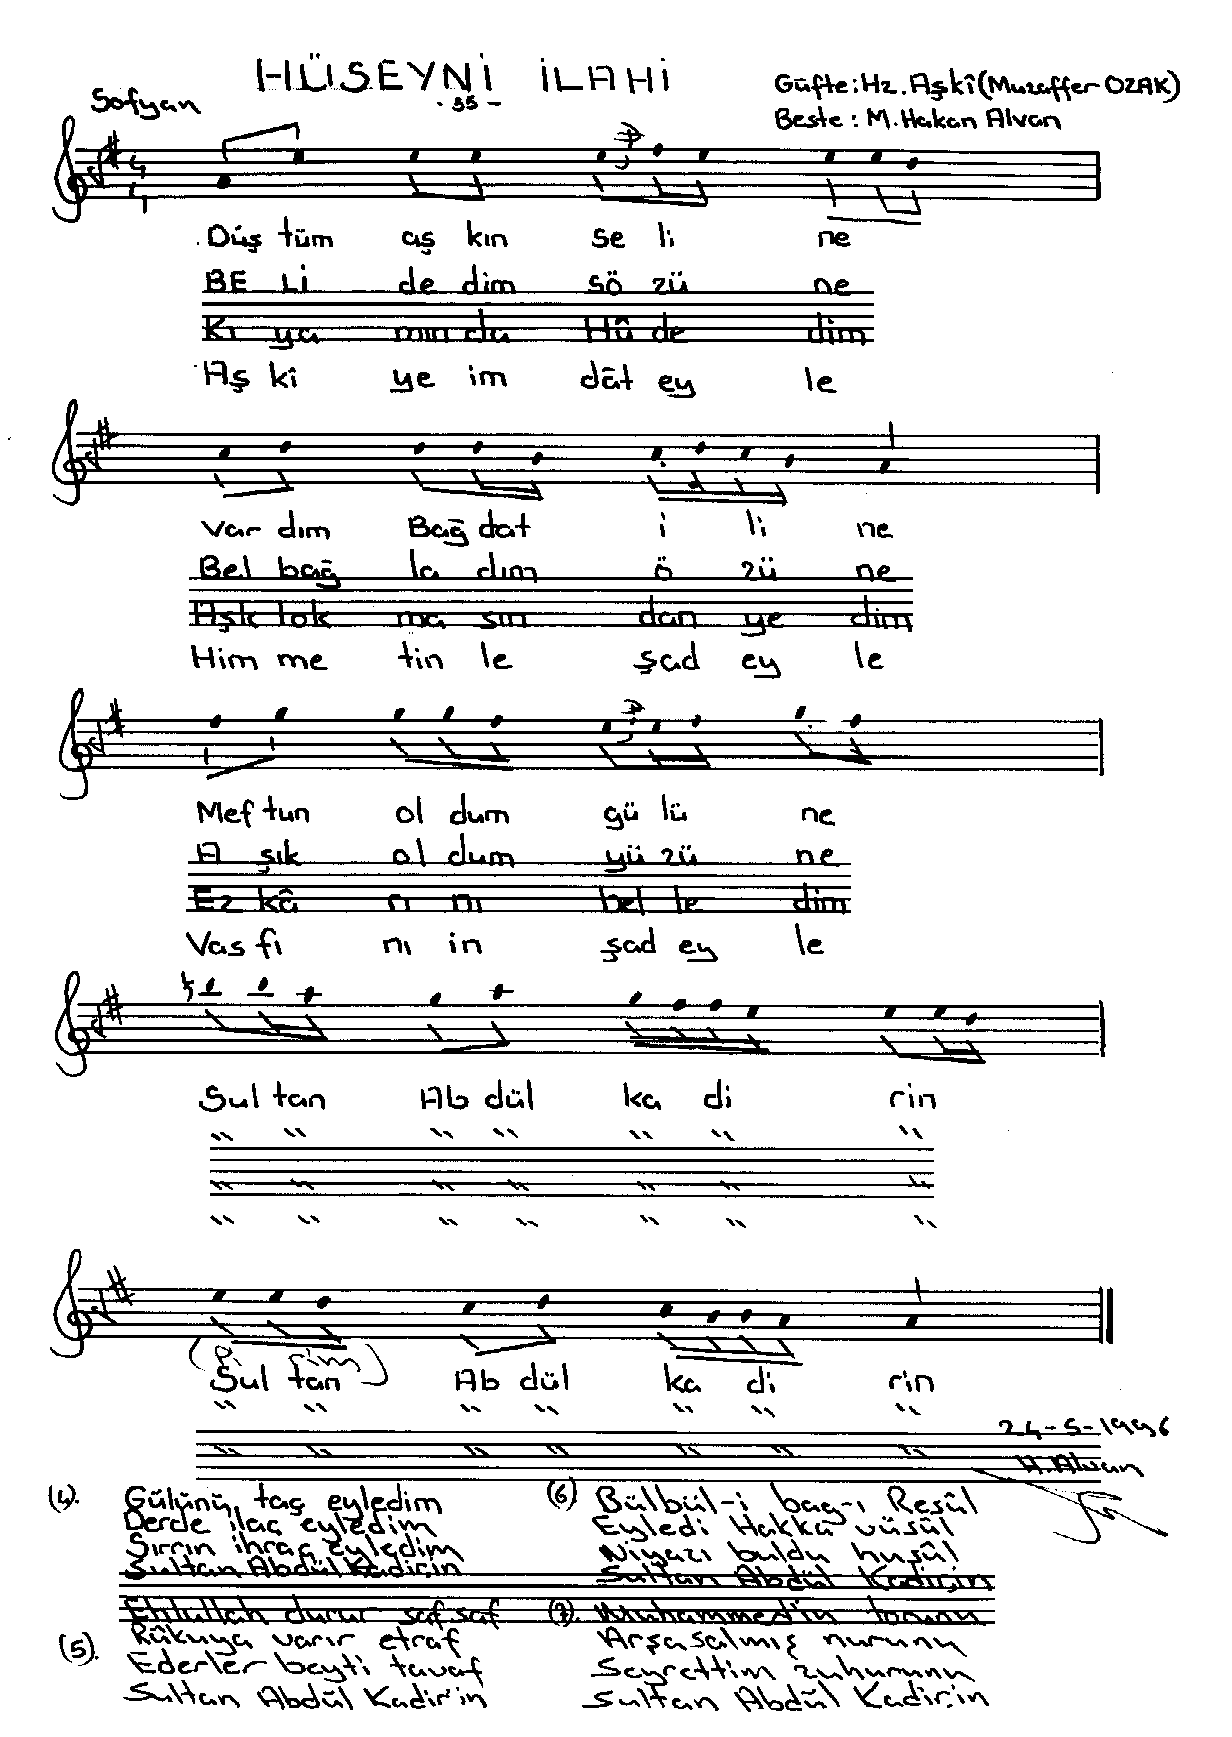 HÜSEYNİ İLAHİ
- 35 -
Sofyan
Güfte: Hz. Aşkî (Muzaffer OZAK)
Beste: M. Hakan Alvan
4
4
Düş tüm aş kın se li ne
BE Lİ de dim sö zü ne
Kı ya mın da Hû de dim
Aş kî ye im dât ey le
Var dım Bağ dat i li ne
Bel bağ la dım ö zü ne
Aşk lok ma sın dan ye dim
Him me tin le şad ey le
Mef tun ol dum gü lü ne
A şık ol dum yü zü ne
Ez kâ rı nı bel le dim
Vas fi nı in şad ey le
Sul tan Ab dül ka di rin
" " " " " " "
" " " " " " "
" " " " " " "
(Pi rim)
Sul tan Ab dül ka di rin
" " " " " " "
" " " " " " "
24-5-1996
H. Alvan
(4). Gülünü, taç eyledim
Derde ilaç eyledim
Sırrın ihraç eyledim
Sultan Abdül Kadir.in
(5). Ehlullah durur saf saf
Rûkuya varır etraf
Ederler beyti tavaf
Sultan Abdül Kadir'in
(6) Bülbül-i bağ-ı Resûl
Eyledi Hakka vüsûl
Niyazı buldu husûl
Sultan Abdül Kadir.in
(7). Muhammed'in torunu
Arşa salmış nurunu
Seyrettim zuhurunu
Sultan Abdül Kadir.in